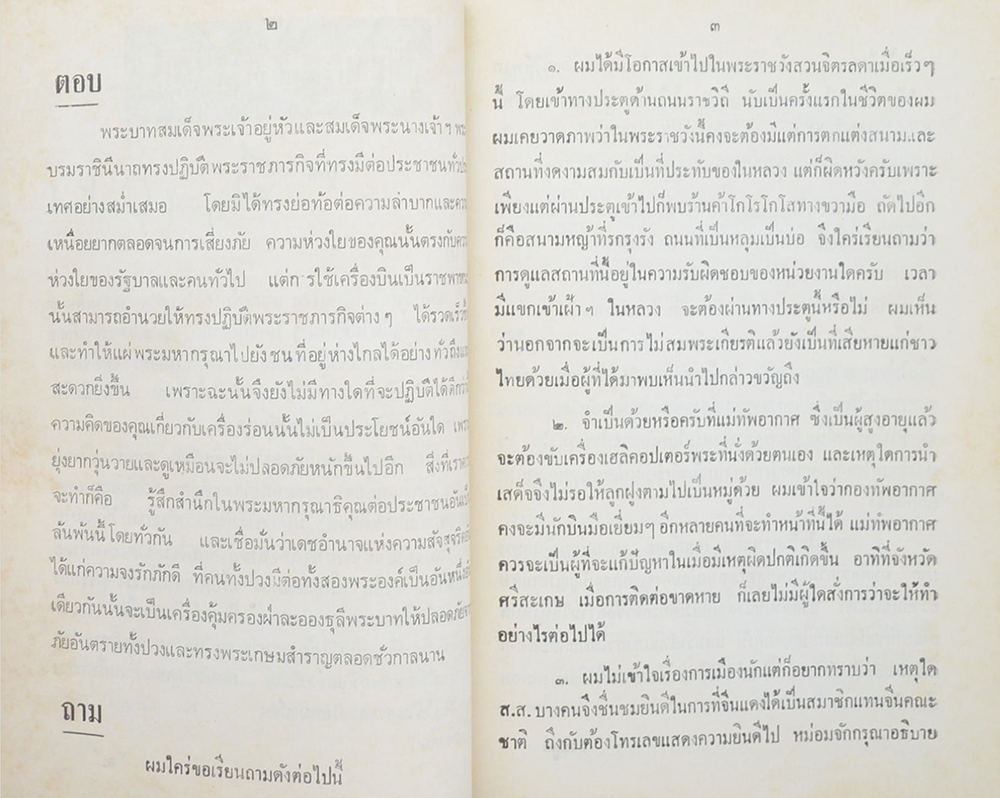 ๒
ตอบ
พระบาทสมเด็จพระเจ้าอยู่หัวและสมเด็จพระนางเจ้าฯ พระ
บรมราชินีนาถทรงปฏิบัติพระราชภารกิจที่ทรงมีต่อประชาชนทั่วประ
เทศอย่างสม่ำเสมอ โดยมิได้ทรงย่อท้อต่อความลำบากและความ
เหนื่อยยากตลอดจนการเสี่ยงภัย ความห่วงใยของคุณนั้นตรงกับความ
ห่วงใยของรัฐบาลและคนทั่วไป แต่การใช้เครื่องบินเป็นราชพาหนะ
นั้นสามารถอำนวยให้ทรงปฏิบัติพระราชภารกิจต่างๆ ได้รวดเร็วขึ้น
และทำให้แผ่พระมหากรุณาไปยังชนที่อยู่ห่างไกลได้อย่างทั่วถึงและ
สะดวกยิ่งขึ้น เพราะฉะนั้นจึงยังไม่มีทางใดที่จะปฏิบัติได้ดีกว่านี้
ความคิดของคุณเกี่ยวกับเครื่องร่อนนั้นไม่เป็นประโยชน์อันใด เพราะ
ยุ่งยากวุ่นวายและดูเหมือนจะไม่ปลอดภัยหนักขึ้นไปอีก สิ่งที่เราควร
จะทำก็คือ รู้สึกสำนึกในพระมหากรุณาธิคุณต่อประชาชนอัน
ล้นพ้นนี้โดยทั่วกัน และเชื่อมั่นว่าเดชอำนาจแห่งความสัจสุจริต
ได้แก่ความจงรักภักดี ที่คนทั้งปวงมีต่อทั้งสองพระองค์เป็นอันหนึ่งอัน
เดียวกันนั้นจะเป็นเครื่องคุ้มครองฝ่าละอองธุลีพระบาทให้ปลอดภัยจาก
ภัยอันตรายทั้งปวงและทรงพระเกษมสำราญตลอดชั่วกาลนาน
ถาม
ผมใคร่ขอเรียนถามดังต่อไปนี้
๓
๑. ผมได้มีโอกาสเข้าไปในพระราชวังสวนจิตรลดาเมื่อเร็วๆ
นี้ โดยเข้าทางประตูด้านถนนราชวิถี นับเป็นครั้งแรกในชีวิตของผม
ผมเคยวาดภาพว่าในพระราชวังนี้คงจะต้องมีแต่การตกแต่งสนามและ
สถานที่งดงามสมกับเป็นที่ประทับของในหลวง แต่ก็ผิดหวังครับเพราะ
เพียงแต่ผ่านประตูเข้าไปก็พบร้านค้าโกโรโกโสทางขวามือ ถัดไปอีก
ก็คือสนามหญ้าที่รกรุงรัง ถนนที่เป็นหลุมเป็นบ่อ จึงใคร่เรียนถามว่า
การดูแลสถานที่นี้อยู่ในความรับผิดชอบของหน่วยงานใดครับ เวลา
มีแขกเข้าเฝ้าฯ ในหลวง จะต้องผ่านทางประตูนี้หรือไม่ ผมเห็น
ว่านอกจากจะเป็นการไม่สมพระเกียรติแล้วยังเป็นที่เสียหายแก่ชาว
ไทยด้วยเมื่อผู้ที่ได้มาพบเห็นนำไปกล่าวขวัญถึง
๒. จำเป็นด้วยหรือครับที่แม่ทัพอากาศ ซึ่งเป็นผู้สูงอายุแล้ว
จะต้องขับเครื่องเฮลิคอปเตอร์พระที่นั่งด้วยตนเอง และเหตุใดการนำ
เสด็จจึงไม่รอให้ลูกฝูงตามไปเป็นหมู่ด้วย ผมเข้าใจว่ากองทัพอากาศ
คงจะมีนักบินมือเยี่ยมๆ อีกหลายคนที่จะทำหน้าที่นี้ได้ แม่ทัพอากาศ
ควรจะเป็นผู้ที่จะแก้ปัญหาในเมื่อมีเหตุผิดปกติเกิดขึ้น อาทิที่จังหวัด
ศรีสะเกษ เมื่อการติดต่อขาดหาย ก็เลยไม่มีผู้ใดสั่งการว่าจะให้ทำ
อย่างไรต่อไปได้
๓. ผมไม่เข้าใจเรื่องการเมืองนักแต่ก็อยากทราบว่า เหตุใด
ส.ส. บางคนจึงชื่นชมยินดีในการที่จีนแดงได้เป็นสมาชิกแทนจีนคณะ
ชาติ ถึงกับต้องโทรเลขแสดงความยินดีไป หม่อมจักกรุณาอธิบาย